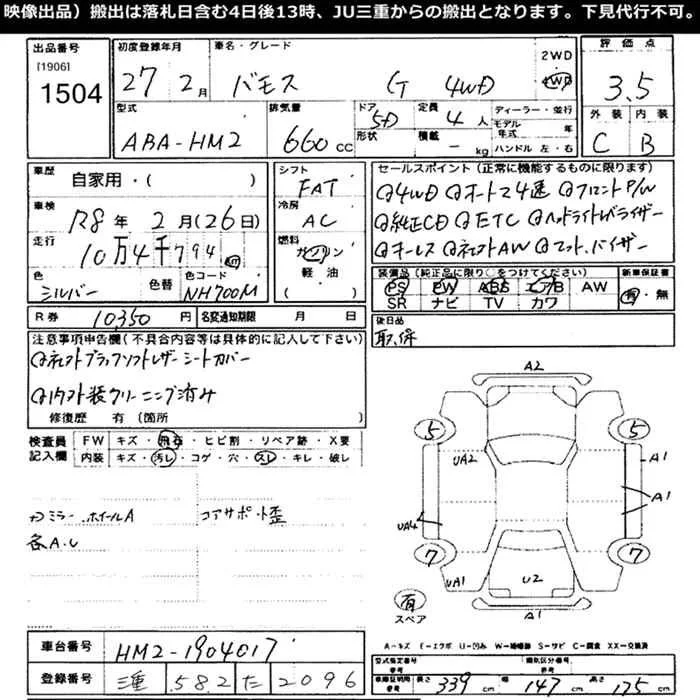 映像出品）搬出は落札日含む4日後13時、JU三重からの搬出となります。下見代行不可。
出品番号 初度登録年月 車名・グレード 2WD 評価点
[1906] 1504 27年2月 バモス G 4WD 4WD 3.5
型式 排気量 ドア 定員 ディーラー・並行 外装 内装
ABA-HM2 660cc 5D 4人 モデル年式 年 C B
形状 積載 - kg ハンドル 左・右
車歴 自家用・( ) シフト FAT セールスポイント(正常に機能するものに限ります)
車検 R8年2月(26日) 冷房 AC
走行 10万4千794km 燃料 ガソリン 軽油
4WD オートマ4速 フロントP/W
純正CD ETC ヘッドライトレバライザー
キーレス 社外AW マット、バイザー
色 シルバー 色替 色コード NH700M
装備品(純正品に限り○をつけてください) 新車保証書
PS PW ABS エアB AW 有・無
SR ナビ TV カワ
R券 10350円 名変通知期限 月 日
後日品 取、保
注意事項申告欄(不具合内容等は具体的に記入して下さい)
社外ブラックソフトレザーシートカバー
内外装クリーニング済み
修復歴 有(箇所
検査員記入欄 FW キズ・飛石・ヒビ割・リペア跡・X要
内装 キズ・汚レ・コゲ・穴・スレ・キレ・破レ
ミラー ホイールA コアサポ歪
各A.U
A2
5 5
UA2 A1
A1
UA4
7 7
UA1 U2
有 スペア A1
A-キズ E-エクボ U-凹み W-補修跡 S-サビ C-腐食 XX-交換済
車台番号 HM2-1904017
登録番号 三重 582 た 2096
型式指定番号 参考 類別区分番号 参考
車庫証明用 参考 長さ 339cm 幅 147cm 高さ 175cm